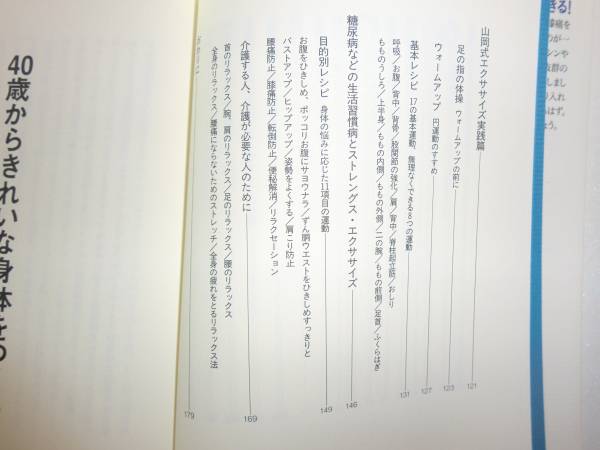 山岡式エクササイズ実践篇 121
足の指の体操 ウォームアップの前に 123
ウォームアップ 円運動のすすめ 127
基本レシピ 17の基本運動、無理なくできる8つの運動 131
呼吸／お腹／背中／背骨／股関節の強化／肩／背中／脊柱起立筋／おしり
もものうしろ／上半身／ももの内側／ももの外側／二の腕／ももの前側／足首／ふくらはぎ
糖尿病などの生活習慣病とストレングス・エクササイズ 146
目的別レシピ 身体の悩みに応じた11項目の運動 149
お腹をひきしめ、ポッコリお腹にサヨウナラ／ずん胴ウエストをひきしめすっきりと
バストアップ／ヒップアップ／姿勢をよくする／肩こり防止
腰痛防止／膝痛防止／転倒防止／便秘解消／リラクセーション
介護する人、介護が必要な人のために 169
首のリラックス／腕、肩のリラックス／足のリラックス／腰のリラックス
全身のリラックス／腰痛にならないためのストレッチ／全身の疲れをとるリラックス法
179
40歳からきれいな身体をつ